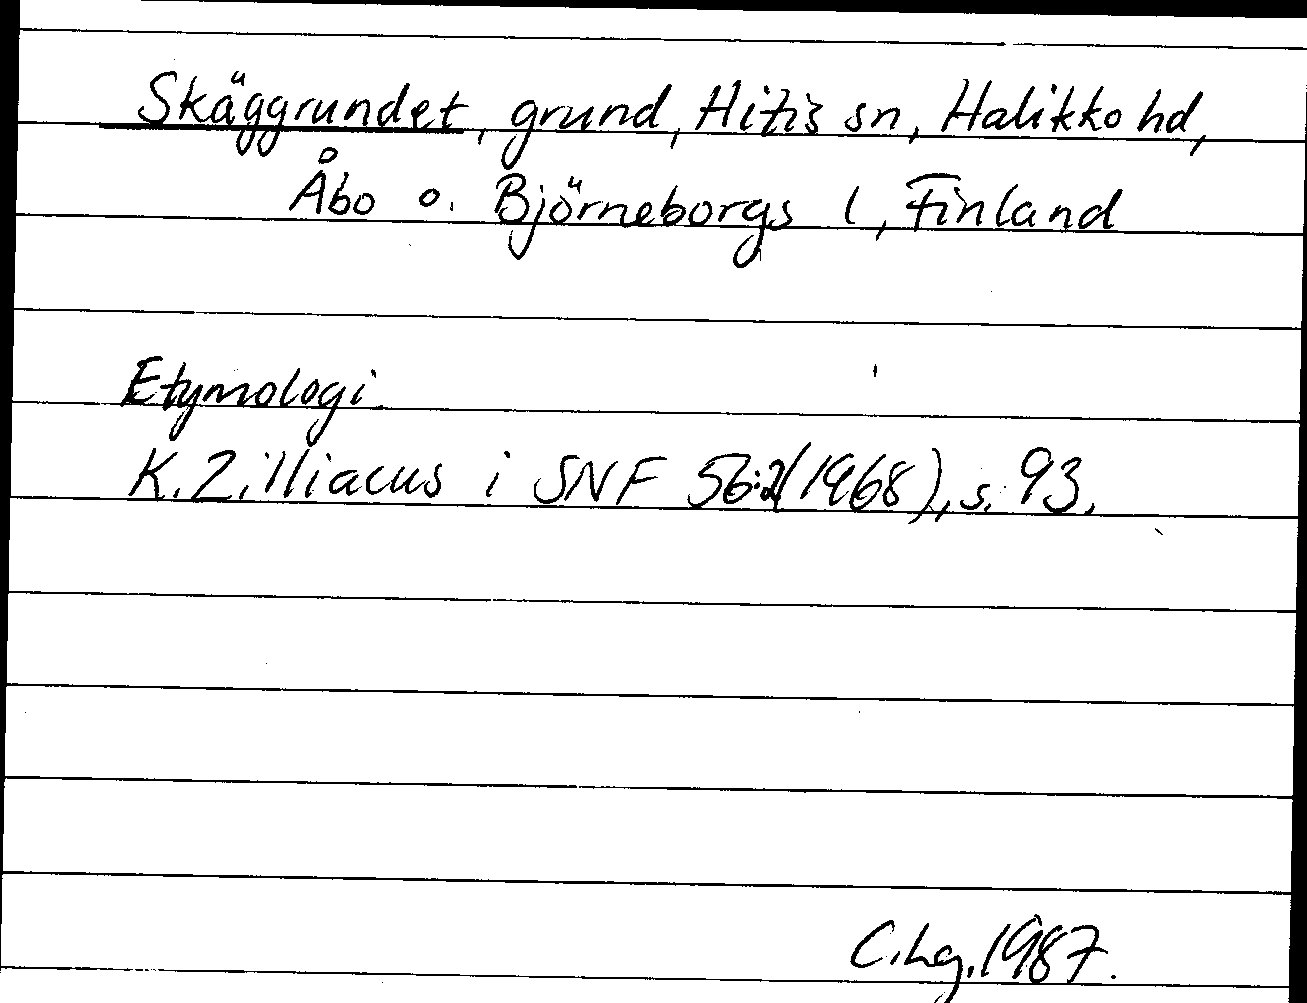 Skäggrundet, grund, Hitis sn, Halikko hd,
Åbo o. Björneborgs l, Finland
Etymologi
K. Zilliacus i SNF 56:2(1968), s. 93.
C.Lg. 1987.